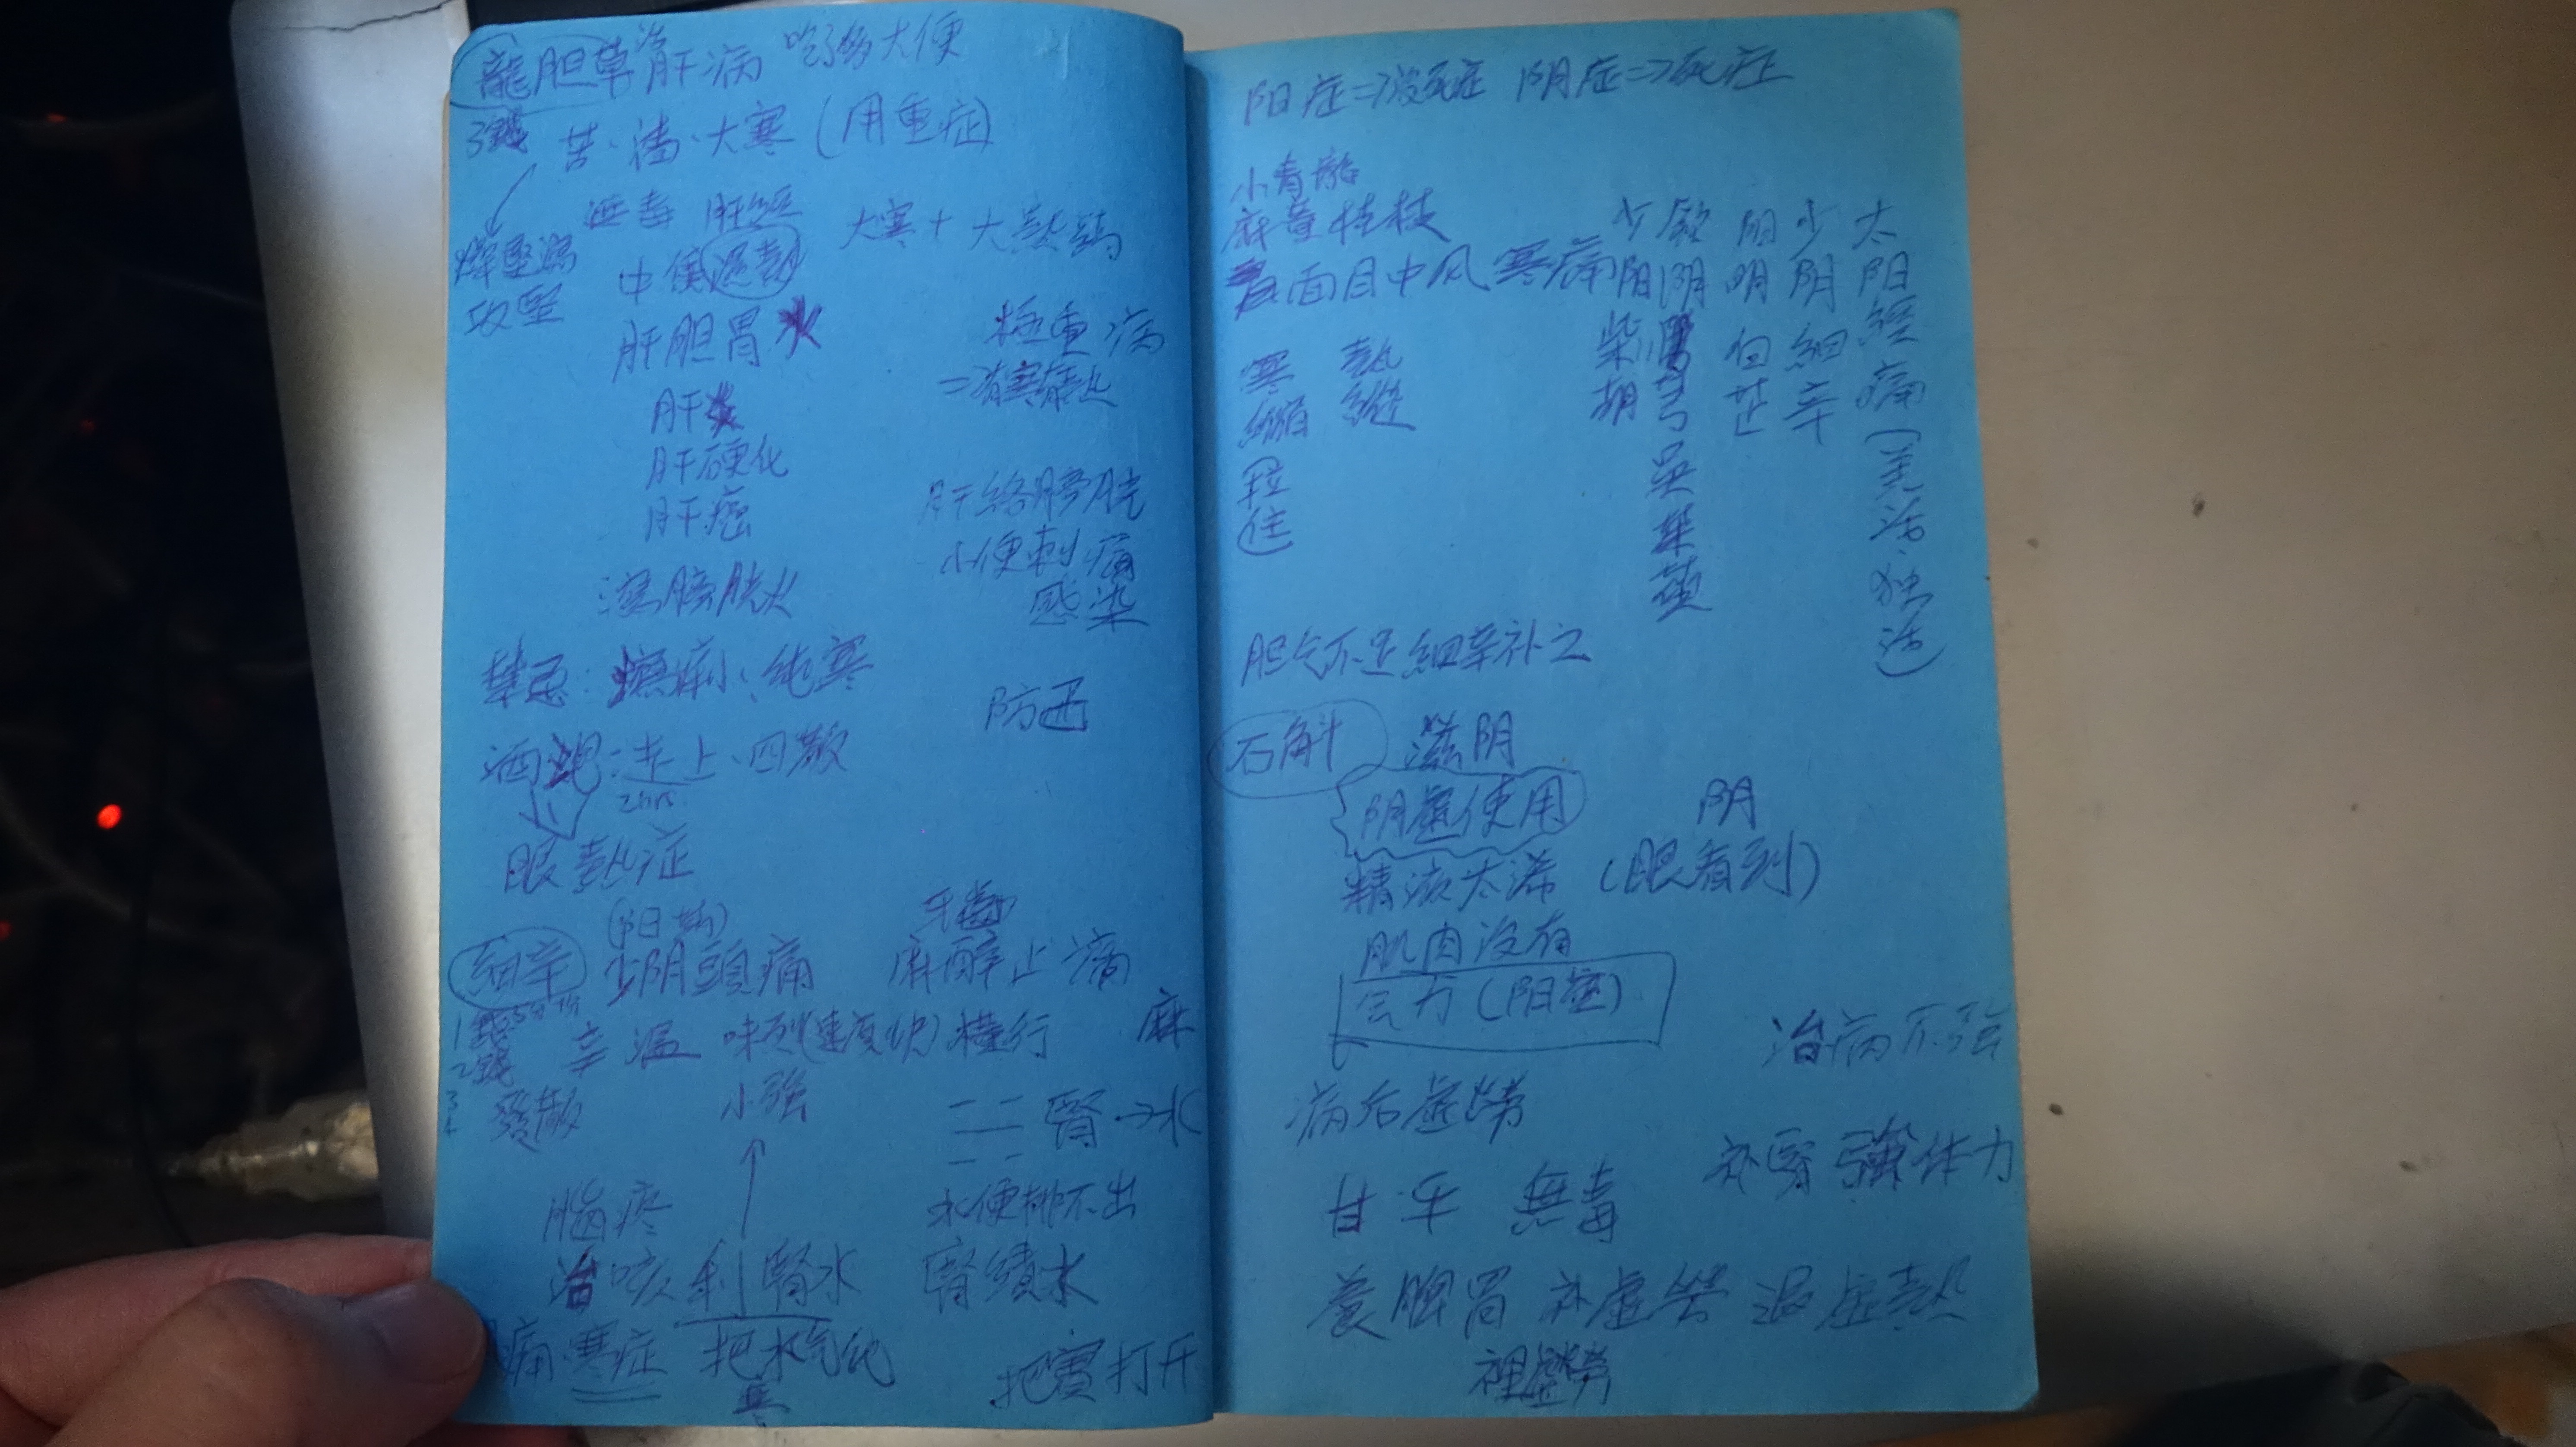 龍胆草 治 肝病 吃了易大便
3錢 苦、濇、大寒(用重症)
泄毒 肝經
大寒+大熱鍋
燥堅濕
攻堅
中傷濕熱
肝胆胃火
極重病
肝炎
肝硬化
肝癌
肝络膀胱
小便刺痛
感染
濕膀胱火
禁忌: 純寒
防迅
酒炮:走上、四散
2hrs.
眼熱症
牙齒
細辛 少阴頭痛 麻醉止痛
1錢
2錢 辛温 味烈(速度快)橫行 麻
發散 小強
二二腎→水
腦疼
水便排不出
治咳利腎水 腎積水
痛寒症 把水气化 把實打开
阳症=>没死症 阴症=>死症
小青龍
麻黄桂枝
面目中风 寒痛
寒縮(拉住)
熱縱
少阳柴胡
厥阴川芎吳茱萸
阳明白芷
少阴細辛
太阳經痛(羌活、独活)
胆气不足細辛补之
石斛 滋阴
阴虚使用 阴
精液太稀 (眼看到)
肌肉没有
会力(阳虚)
治病不強
病后虚勞
补腎強体力
甘平 無毒
養脾胃 补虚勞 退虚熱
裡虚勞